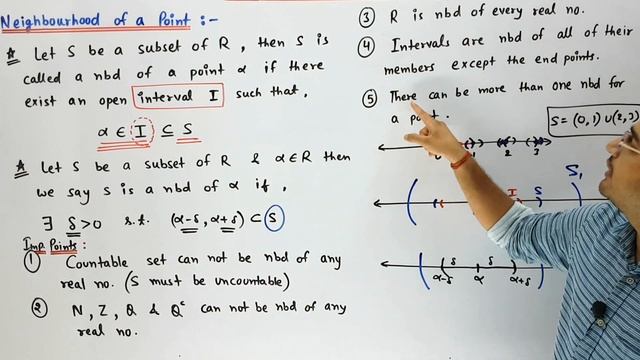 Neighbourhood of a Point :-
☆ Let S be a subset of R, then S is
called a nbd of a point α if there
exist an open interval I such that,
α ∈ I ⊆ S
☆ Let S be a subset of R & α∈R then
we say S is a nbd of α if,
∃ δ>0 s.t. (α-δ, α+δ) ⊂ S
Imp. Points:
① Countable set can not be nbd of any
real no. (S must be uncountable)
② N, Z, Q & Qᶜ can not be nbd of any
real no.
③ R is nbd of every real no.
④ Intervals are nbd of all of their
members except the end points.
⑤ There can be more than one nbd for
a point.
S = (0,1) ∪ (2,3)
1 2 3
I S S₁
δ δ
α-δ α α+δ